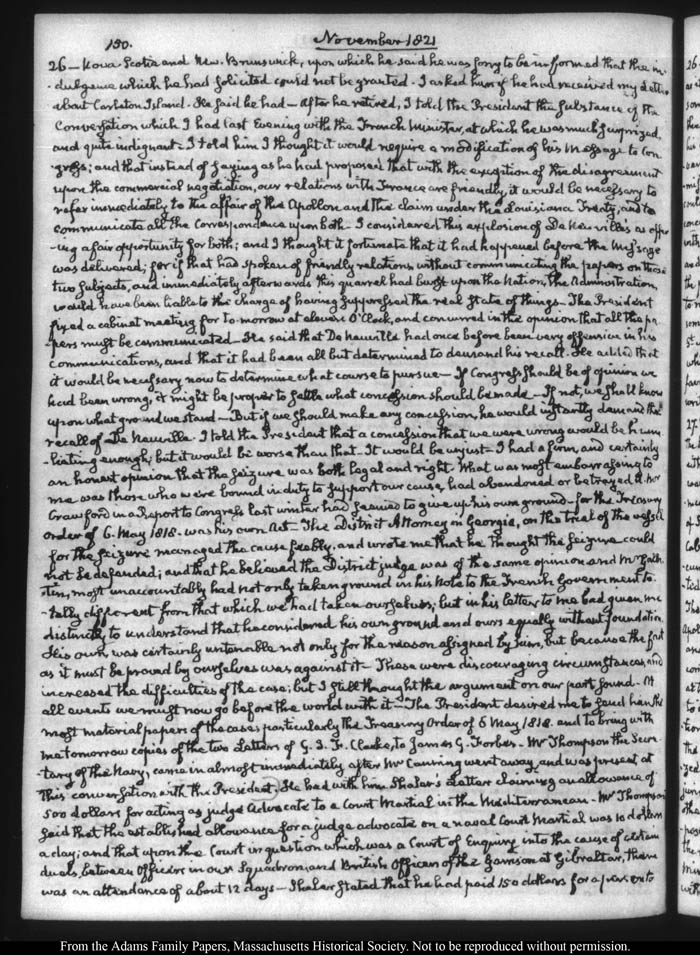 150.
November 1821
26 — Nova Scotia and New-Brunswick, upon which he said he was sorry to be informed that the in-
-dulgence which he had solicited could not be granted. I asked him if he had received my Letter
about Carleton Island. He said he had — After he retired, I told the President the substance of the
Conversation which I had last Evening with the French Minister, at which he was much surprized,
and quite indignant. I told him I thought it would require a modification of his Message to Con-
-gress; and that instead of saying as he had proposed that with the exception of the disagreement
upon the commercial negotiation, our relations with France are friendly, it would be necessary to
refer immediately to the affair of the Apollon and the claim under the Louisiana Treaty, and to
communicate all the Correspondence upon both — I considered this explosion of De Neuville's as offer
-ing a fair opportunity for both; and I thought it fortunate that it had happened before the Message
was delivered; for if that had spoken of friendly relations without communicating the papers on those
two subjects, and immediately afterwards this quarrel had burst upon the Nation, the Administration,
would have been liable to the charge of having suppressed the real state of things — The President
fixed a cabinet meeting for to-morrow at eleven O'Clock, and concurred in the opinion that all the pa-
-pers must be communicated — He said that De Neuville had once before been very offensive in his
communications, and that it had been all but determined to demand his recall. He added that
it would be necessary now to determine what course to pursue — If Congress should be of opinion we
had been wrong, it might be proper to settle what concession should be made — If not, we shall know
upon what ground we stand — But if we should make any concession, he would instantly demand the
recall of De Neuville. I told the President that a concession that we were wrong would be hum-
-iliating enough; but it would be worse than that — It would be unjust — I had a firm, and certainly
an honest opinion that the seizure was both legal and right. What was most embarrassing to
me was those who were bound in duty to support our cause, had abandoned or betrayed it. Mr
Crawford in a Report to Congress last winter had seemed to give up his own ground — for the Treasury
order of 6. May 1818. was his own Act — The District Attorney in Georgia, on the trial of the vessel
for the seizure managed the cause feebly, and wrote me that he thought the seizure could
not be defended; and that he believed the District judge was of the same opinion and Mr Galla-
-tin, most unaccountably had not only taken ground in his Note to the French Government to-
-tally different from that which we had taken ourselves; but in his letter to me had given me
distinctly to understand that he considered his own ground and ours equally without foundation
His own was certainly untenable not only for the reason assigned by him, but because the fact
as it must be proved by ourselves was against it — These were discouraging circumstances, and
increased the difficulties of the case; but I still thought the argument on our part sound. At
all events we must now go before the world with it — The President desired me to send him the
most material papers of the cases particularly the Treasury Order of 6 May 1818. and to bring with
me tomorrow copies of the two Letters of G. I. F. Clarke, to James G. Forbes — Mr Thompson the Secre
-tary of the Navy, came in almost immediately after Mr Canning went away, and was present at
this conversation with the President. He had with him Shaler's Letter claiming an allowance of
500 dollars for acting as judge Advocate to a Court Martial in the Mediterranean — Mr Thompson
said that the established allowance for a judge advocate on a naval Court Martial was 10 dollars
a day; and that upon the Court in question which was a Court of Enquiry into the cause of certain
duels, between Officers in our Squadron, and British Officers of the Garrison at Gibraltar, there
was an attendance of about 12 days — Shaler stated that he had paid 150 dollars for a person to
From the Adams Family Papers, Massachusetts Historical Society. Not to be reproduced without permission.